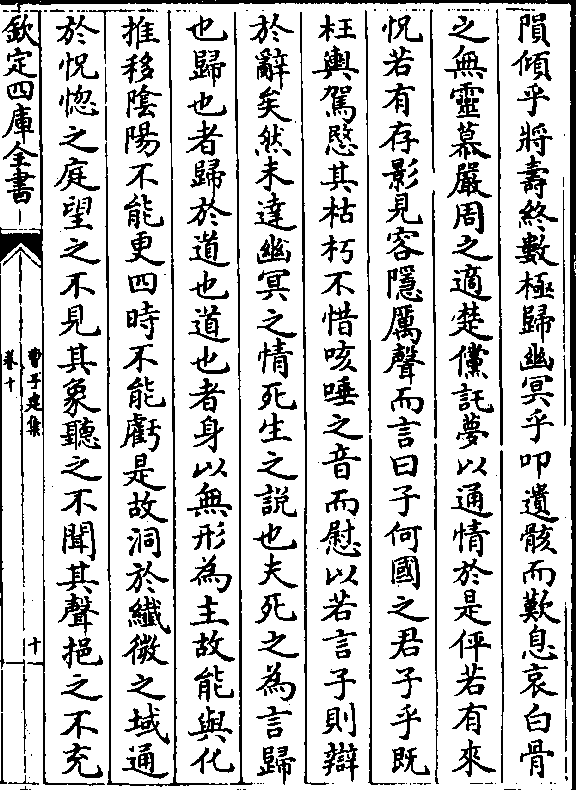 隕傾乎將壽終數極歸幽冥乎叩遺骸而歎息哀白骨
之無靈慕嚴周之適楚儻託夢以通情於是伻若有來
怳若有存影見容隱厲聲而言曰子何國之君子乎既
枉輿駕愍其枯朽不惜咳唾之音而慰以若言子則辯
於辭矣然未達幽冥之情死生之説也夫死之為言歸
也歸也者歸於道也道也者身以無形為主故能與化
推移陰陽不能更四時不能虧是故洞於纖微之域通
於怳惚之庭望之不見其象聽之不聞其聲挹之不充
欽定四庫全書
曹子建集
卷十
十